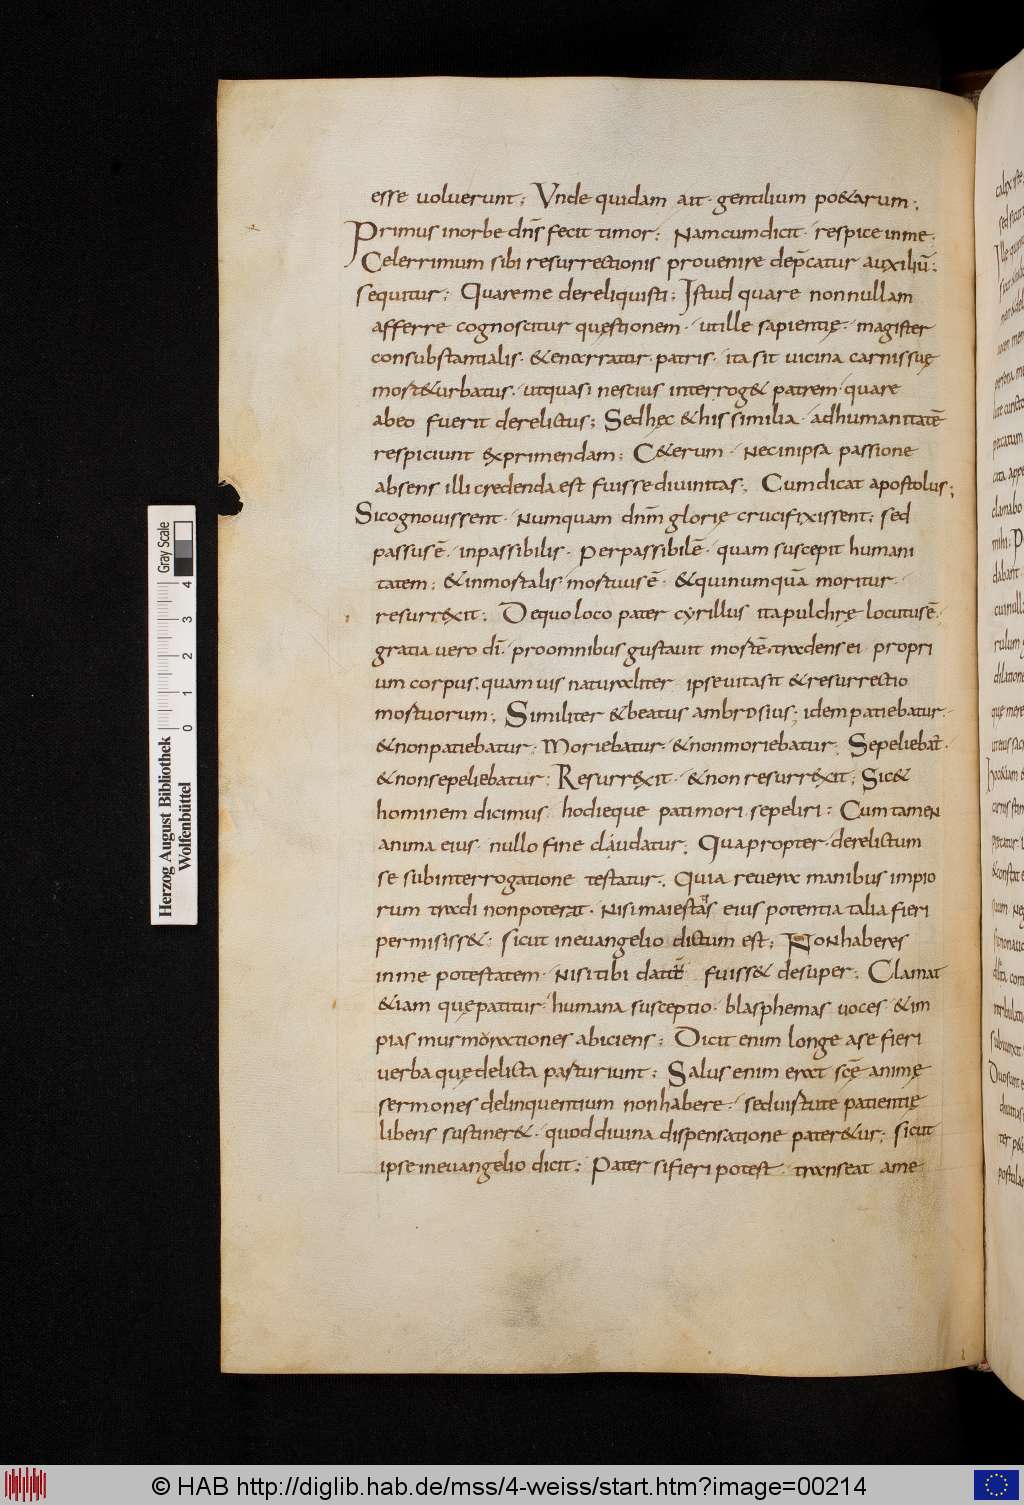 esse uoluerunt; Vnde quidam ait· gentilium po&arum;
Primus inorbe dn̄s fecit timor; Namcumdicit· respice inme;
Celerrimum sibi resurrectionis prouenire dep̄catur auxiliū;
sequitur; Quareme dereliquisti; Istud quare nonnullam
afferre cognoscitur quęstionem· utille sapientię· magister
consubstantialis· &enarratur patris· ita sit uicina carnissuę
mort&urbatus· utquasi nescius interrog& patrem quare
abeo fuerit derelictus; Sedhęc &his similia· adhumanitatē
respiciunt exprimendam; C&erum· Necinipsa passione
absens illi credenda est fuisse diuinitas; Cumdicat apostolus;
Sicognouissent· Numquam dn̄m glorię crucifixissent; sed
passus ē· inpassibilis· Perpassibilē· quam suscepit humani
tatem; &inmortalis mortuus ē· &quinumquā moritur·
resurrexit; Dequo loco pater cyrillus ita pulchrę locutus ē;
gratia uero dī· proomnibus gustauit mortē· tradens ei propri
um corpus, quamuis naturaliter ipse uita sit &resurrectio
mortuorum; Similiter &beatus ambrosius; idem patiebatur·
&nonpatiebatur; Moriebatur· &nonmoriebatur; Sepeliebat̄·
&nonsepeliebatur; Resurrexit· &non resurrexit; Sic&
hominem dicimus hodieque pati mori sepeliri; Cum tamen
anima eius nullo fine claudatur; Quapropter· derelictum
se subinterrogatione testatur; Quia reuera manibus impio
rum tradi nonpoterat· Nisi maiestas eius potentia talia fieri
permisiss&; sicut ineuangelio dictum est; Nonhaberes
inme potestatem· Nisi tibi datū fuiss& desuper; Clamat
&iam quępatitur· humana susceptio· blasphemas uoces &im
pias murmorationes abiciens; Dicit enim longe ase fieri
uerba quędelicta parturiunt; Salus enim erat scę̄ animę
sermones delinquentium nonhabere· seduirtute patientię
libens sustiner&· quod diuina dispensatione pater&ur; sicut
ipse ineuangelio dicit; Pater sifieri potest transeat ame
Herzog August Bibliothek
Wolfenbüttel
Gray Scale
0 1 2 3 4
© HAB http://diglib.hab.de/mss/4-weiss/start.htm?image=00214